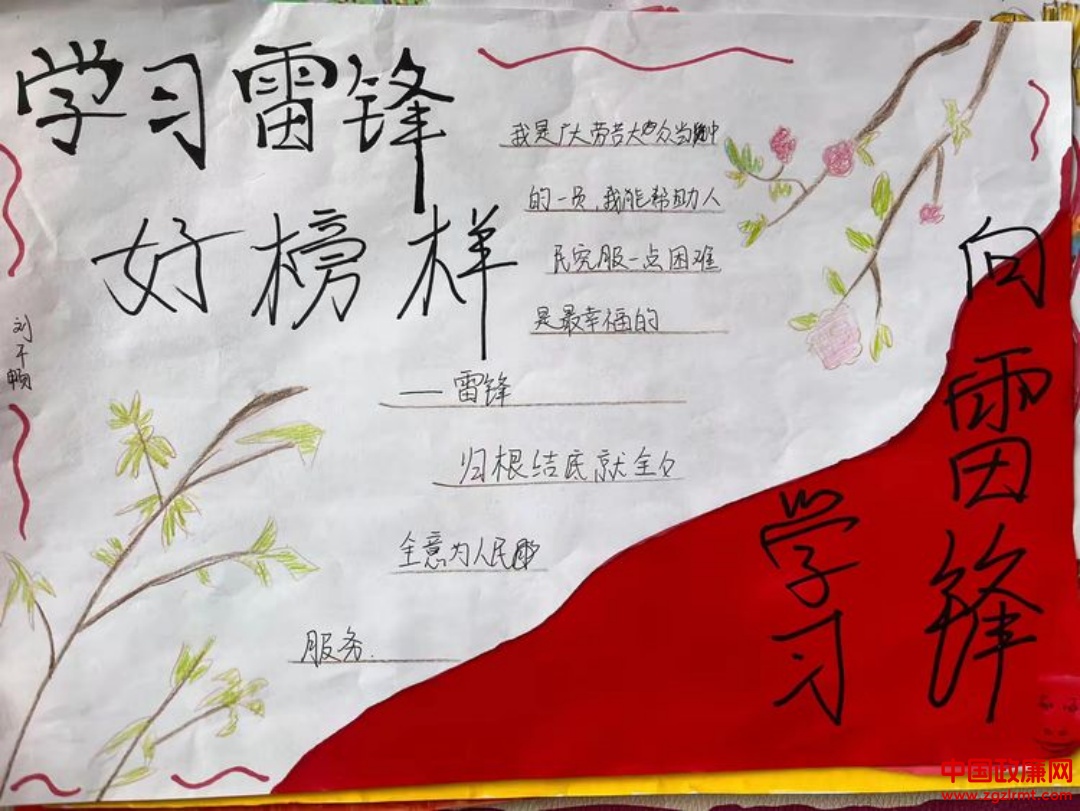 学习雷锋
好榜样
我是广大劳苦大众当中
的一员,我能帮助人
民克服一点困难
是最幸福的
一雷锋
归根结底就全心
全意为人民
服务.
刘千畅
向雷锋
学习
中国政廉网
www.zgzlrmt.com